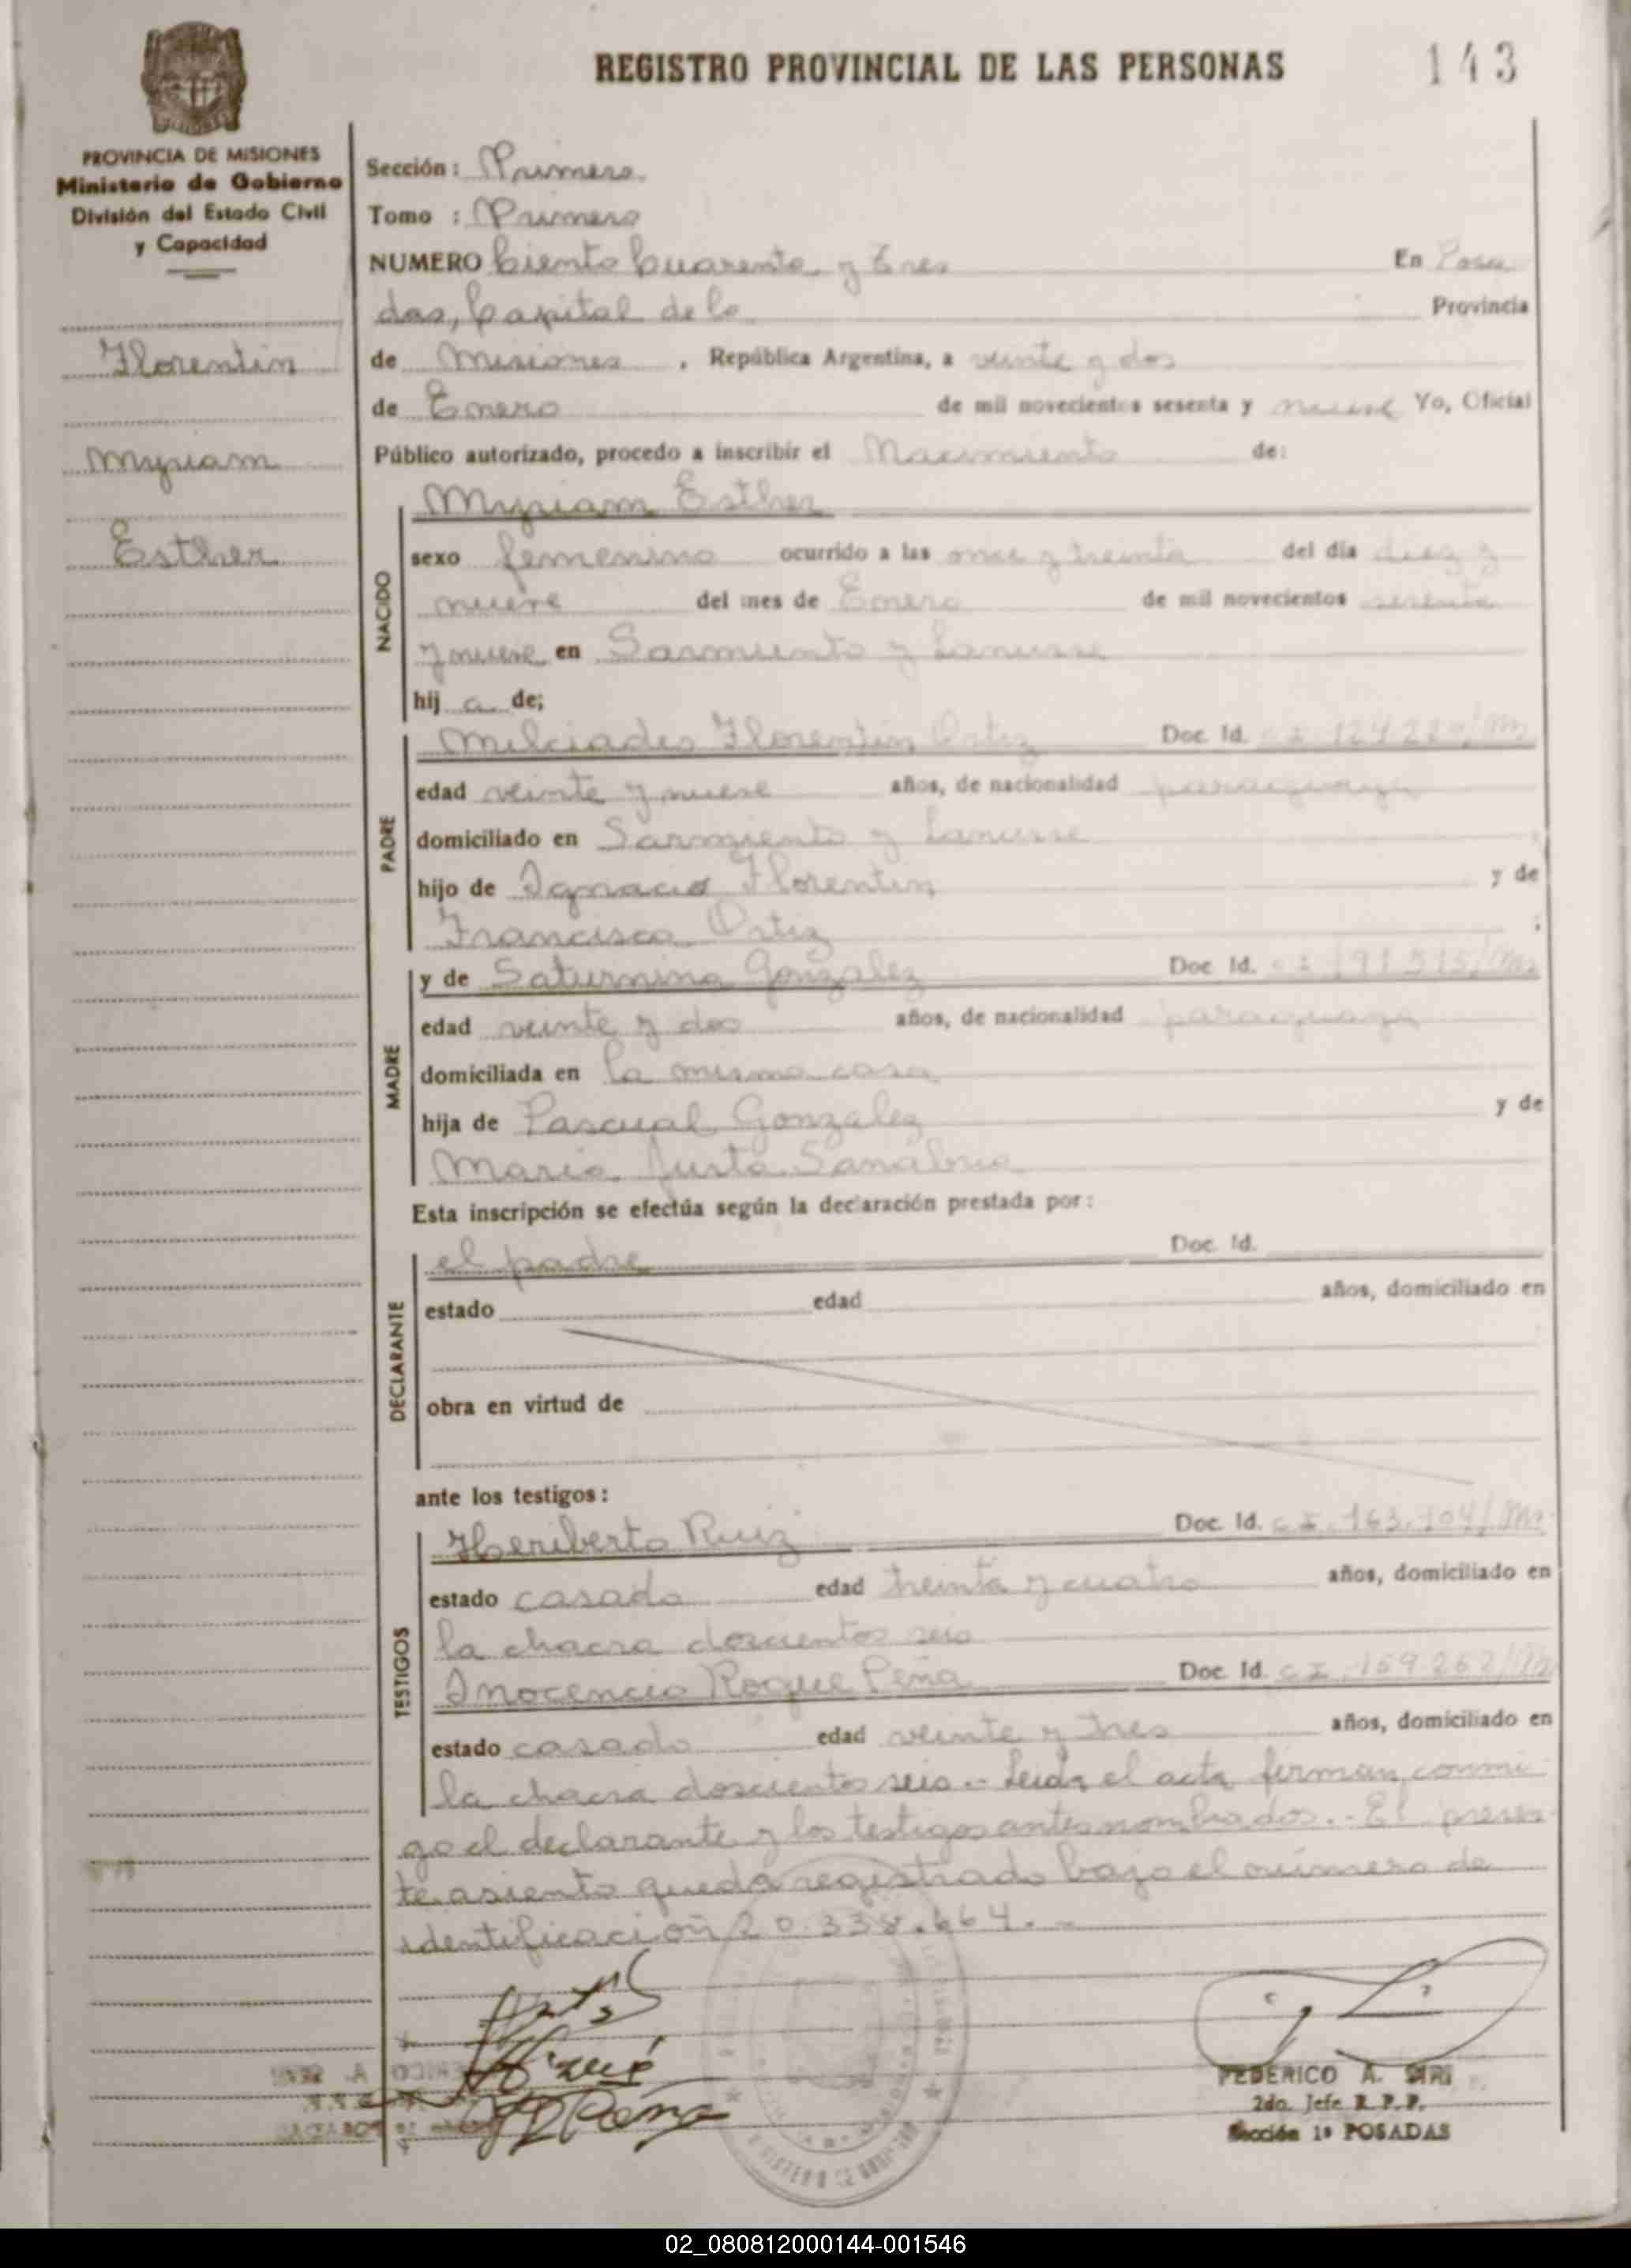 REGISTRO PROVINCIAL DE LAS PERSONAS 143
PROVINCIA DE MISIONES
Ministerio de Gobierno
División del Estado Civil
y Capacidad
Florentin
Myriam
Esther
Sección: Primera
Tomo : Primero
NUMERO Ciento Cuarenta y Tres En Posa
das, Capital de la Provincia
de Misiones, República Argentina, a veinte y dos
de Enero de mil novecientos sesenta y nueve Yo, Oficial
Público autorizado, procedo a inscribir el Nacimiento de:
NACIDO
Myriam Esther
sexo femenino ocurrido a las once y treinta del día diez y
nueve del mes de Enero de mil novecientos sesenta
y nueve en Sarmiento y Lanusse
hij a de;
PADRE
Milciades Florentin Ortiz Doc. Id. C I
edad veinte y nueve años, de nacionalidad paraguaya
domiciliado en Sarmiento y Lanusse
hijo de Ignacio Florentin y de
Francisca Ortiz ;
MADRE
y de Saturnina Gonzalez Doc Id. C I
edad veinte y dos años, de nacionalidad paraguaya
domiciliada en la misma casa
hija de Pascual Gonzalez y de
Maria Justa Sanabria
Esta inscripción se efectúa según la declaración prestada por:
DECLARANTE
el padre Doc. Id.
estado edad años, domiciliado en
obra en virtud de
ante los testigos:
TESTIGOS
Heriberto Ruiz Doc. Id. C I. 163.104/M
estado casado edad treinta y cuatro años, domiciliado en
la chacra doscientos seis
Inocencio Roque Peña Doc. Id. C I.
estado casado edad veinte y tres años, domiciliado en
la chacra doscientos seis.- Leida el acta firman conmi
go el declarante y los testigos antes nombrados.- El presen
te asiento queda registrado bajo el número de
identificación 20.338.664.-
FEDERICO A. SIRI
2do. Jefe R. P. P.
Sección 1ª POSADAS
02_080812000144-001546